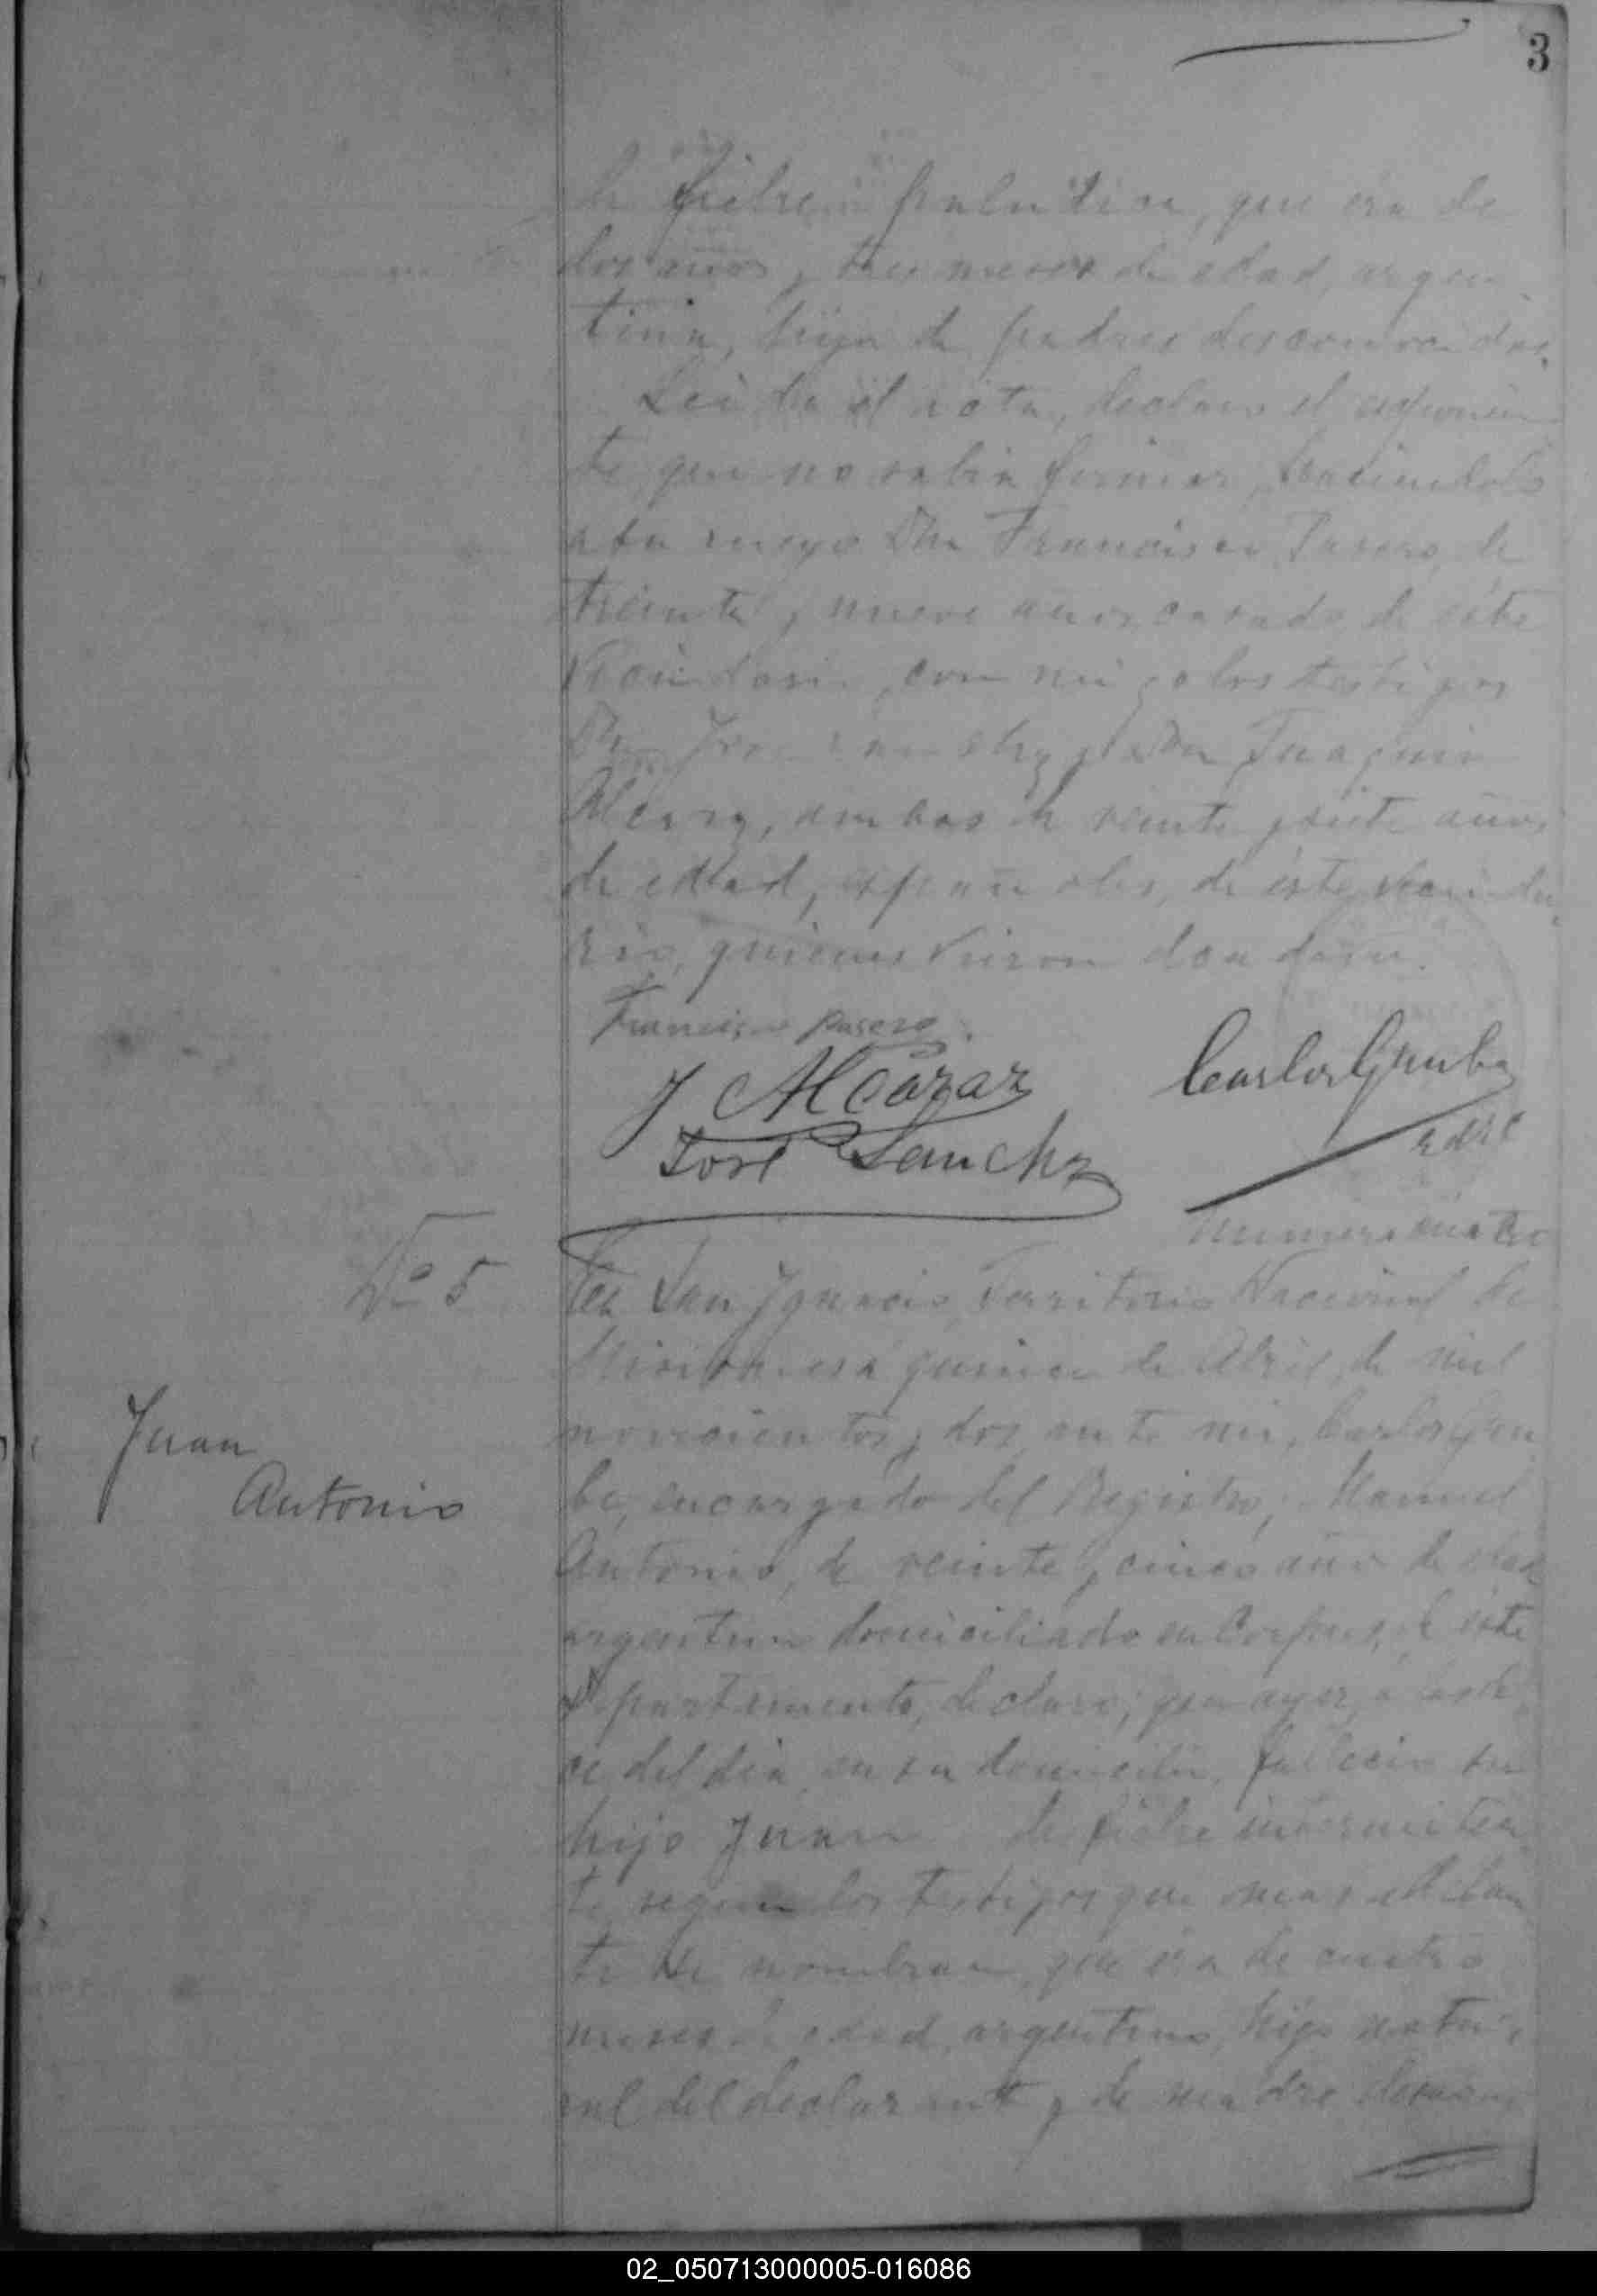 3
de fiebre palúdica, que era de
dos años y tres meses de edad, argen
tina, hija de padres desconocidos.
Leida el acta, declaró el exponen
te que no sabia firmar, haciendolo
a su ruego Don Francisco Pasero, de
treinta y nueve años, casado, de éste
vecindario, con migo los testigos
Don José Sanchz y Don Juaquin
Alcaraz, ambos de veinte y siete años
de edad, españoles, de éste vecinda
rio, quienes vieron
Francisco Pasero.
J Alcazar
José Sanchz
numero cuatro
Nº 5
En San Ignacio, Territorio Nacional de
Misiones a quince de Abril, de mil
novecientos y dos, ante mi, Carlos
encargado del Registro, Manuel
Antonio, de veinte y cinco años de edad
argentino domiciliado en Corpus, de éste
departamento, declaró; que ayer, a las
del dia, en su domicilio, falleció su
hijo Juan de fiebre intermiten
te segun los testigos que mas adelan
te se nombran, que era de cuatro
meses de edad, argentino, hijo natu
ral del declarante y de madre
Juan
Antonio
02_050713000005-016086